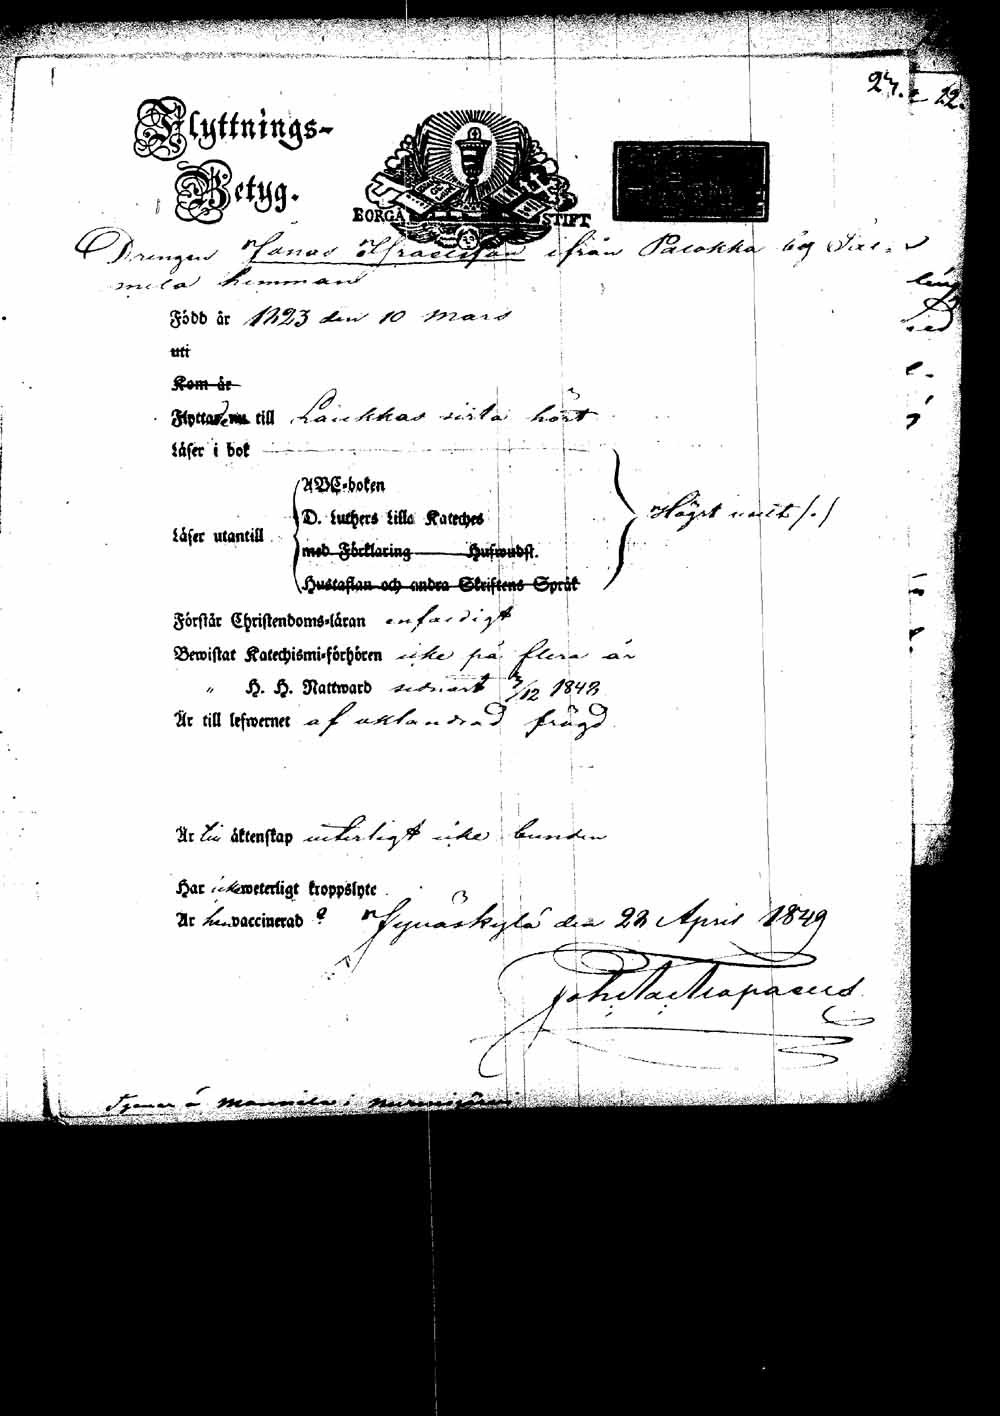 27. 22.
Flyttnings-
Betyg.
BORGÅ STIFT
Drengen Jonas Israelsson ifrån Palokka by
mela hemman
Född år 1823 den 10 Mars
uti
Kom år
Flyttade nu till Laukkas sista höst
Läser i bok
ABC-boken
D. Luthers Lilla Kateches
Läser utantill
med Förklaring Huswudst.
Hustaflan och andra Skriftens Språk
Högst
Förstår Christendoms-läran enfaldigt
Bewistat Katechismi-förhören icke på flera år
" H. H. Nattward sednast 3/12 1848
Är till lefwernet af oklandrad frägd
Är till äktenskap weterligt icke bunden
Har icke weterligt kroppslyte
Är han vaccinerad? Jyväskylä den 22 April 1849
i Nurmijärvi